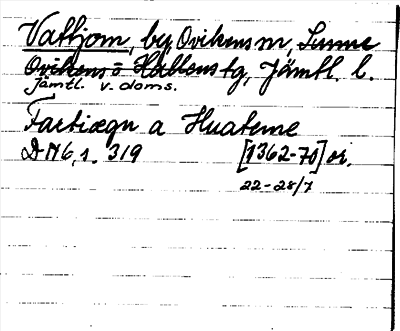 Vattjom, by, Ovikens sn, Sunne
Ovikens o Hallens tg, Jämtl. l.
Jämtl. v. doms.
Fartiægn a Huateme
DN 6, 1. 319 [1362-70] or.
22-28/7